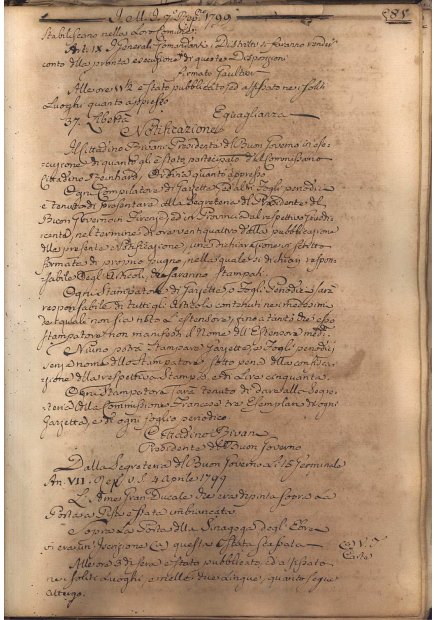 585
stabiliscono nelle Loro Comunità
Art. IX I Generali Comandanti i Distretti si faranno render
conto della pronta esecuzione di queste Disposizioni
Firmato Gaultier
Alle ore 11 1/2 è stato pubblicato, ed affissato nei soliti
Luoghi quanto appresso
37. Libertà Eguaglianza
Notificazione
Il Cittadino Bivani Presidente del Buon Governo in ese-
cuzione di quanto gli è stato partecipato dal Commissario
Cittadino Reinhard, Ordina quanto appresso
Ogni Compilatore di Gazzette, ed altri Fogli periodici
è tenuto di presentare alla Segreteria del Presidente del
Buon Governo in Firenze, ed in Provincia al respettivo
nel termine di ore ventiquattro dalla pubblicazione
della presente Notificazione, una dichiarazione in scritto
firmata di proprio pugno, nella quale si dichiari respon-
sabile degli Articoli, che saranno Stampati.
Ogni Stampatore di Gazzette, o Fogli Periodici sarà
responsabile di tutti gli Articoli contenuti nei medesimi
dei quali non sia noto l'estensore, fino a tanto che esso
Stampatore non manifesti il Nome dell'Estensore med.º
Niuno potrà Stampare Gazzette, o Fogli periodici
senza nome dello Stampatore sotto pena della confisca-
zione della respettiva Stampa, e di Lire cinquanta.
Ogni Stampatore sarà tenuto di dare alla Segre-
teria della Commissione Francese tre Esemplari di ogni
Gazzetta, e di ogni foglio periodico
Cittadino Bivani
Presidente del Buon Governo
Dalla Segreteria del Buon Governo li 15 Germinale
An. VII. 4 Aprile 1799
L'Arme Gran Ducale che era dipinta sopra la
Porta a è stata imbiancata.
e sopra la Porta della Sinagoga degli Ebrei
vi era un'Iscrizione (a) questa è stata scassata
(a) V. I.
Carte
Alle ore 3 di sera è stato pubblicato, ed affissato
nei soliti Luoghi, e nelle due cinque, quanto segue